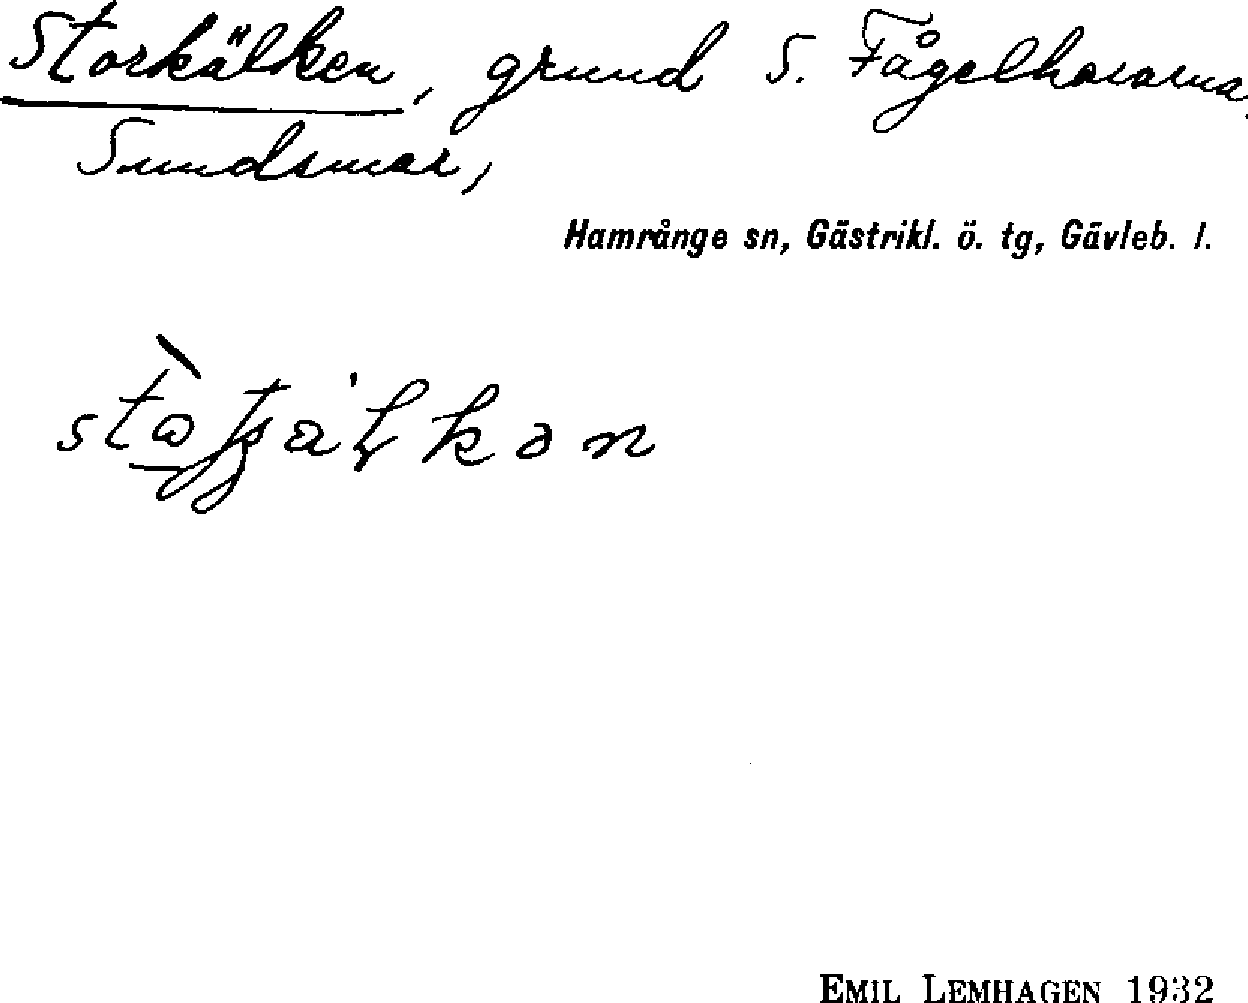 Storkälken, grund S. Fågelhararna,
Sundsmar,
Hamrånge sn, Gästrikl. ö. tg, Gävleb. l.
EMIL LEMHAGEN 1932